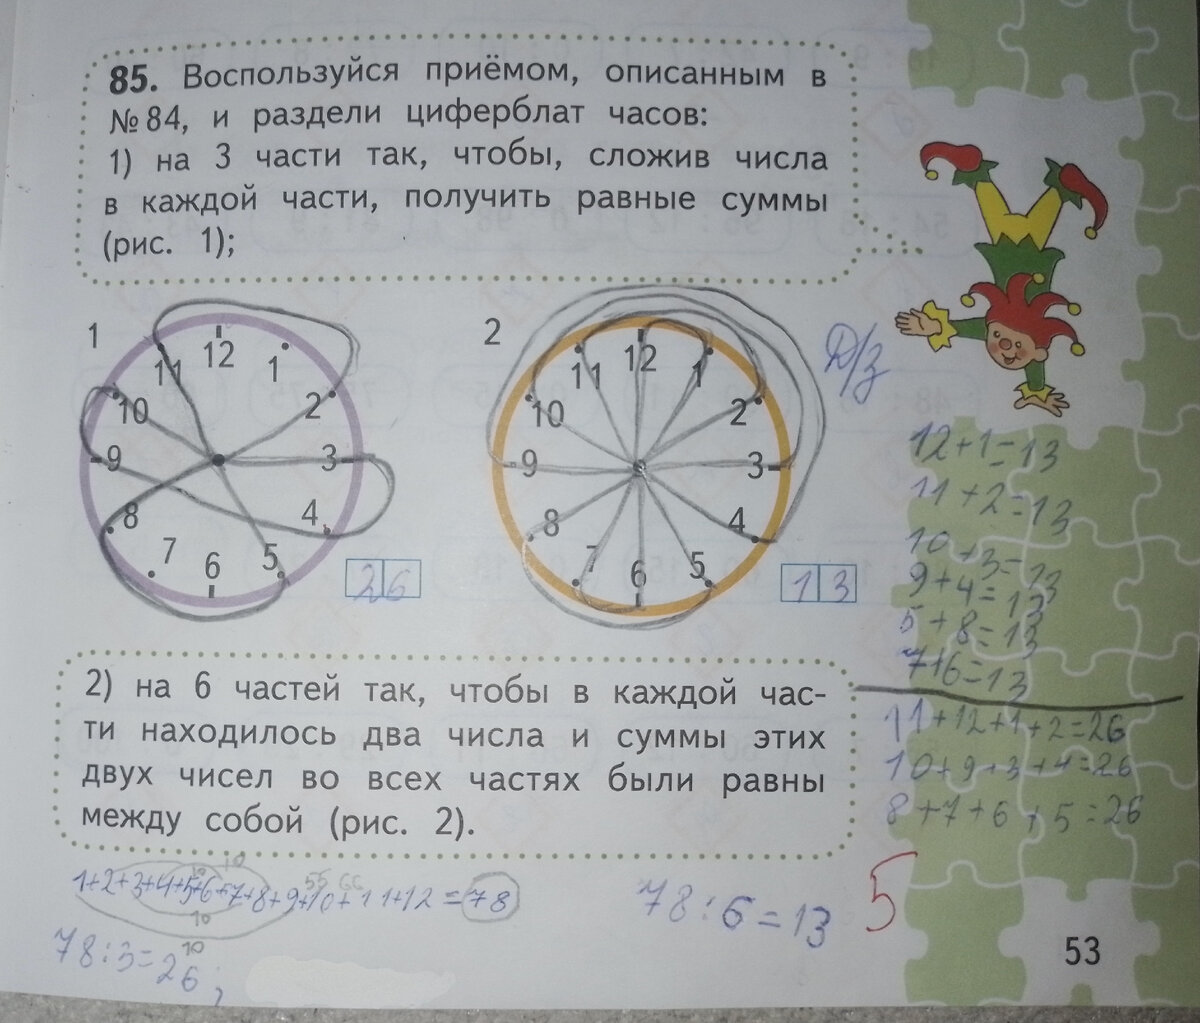 85. Воспользуйся приёмом, описанным в
№ 84, и раздели циферблат часов:
1) на 3 части так, чтобы, сложив числа
в каждой части, получить равные суммы
(рис. 1);
1
12
1
2
3
4
5
6
7
8
9
10
11
26
2
12
1
2
3
4
5
6
7
8
9
10
11
13
Д/з
12+1=13
11+2=13
10+3=13
9+4=13
5+8=13
7+6=13
11+12+1+2=26
10+9+3+4=26
8+7+6+5=26
2) на 6 частей так, чтобы в каждой час-
ти находилось два числа и суммы этих
двух чисел во всех частях были равны
между собой (рис. 2).
10
10
55 66
1+2+3+4+5+6+7+8+9+10+11+12=78
10
10
78:3=26;
78:6=13
5
53